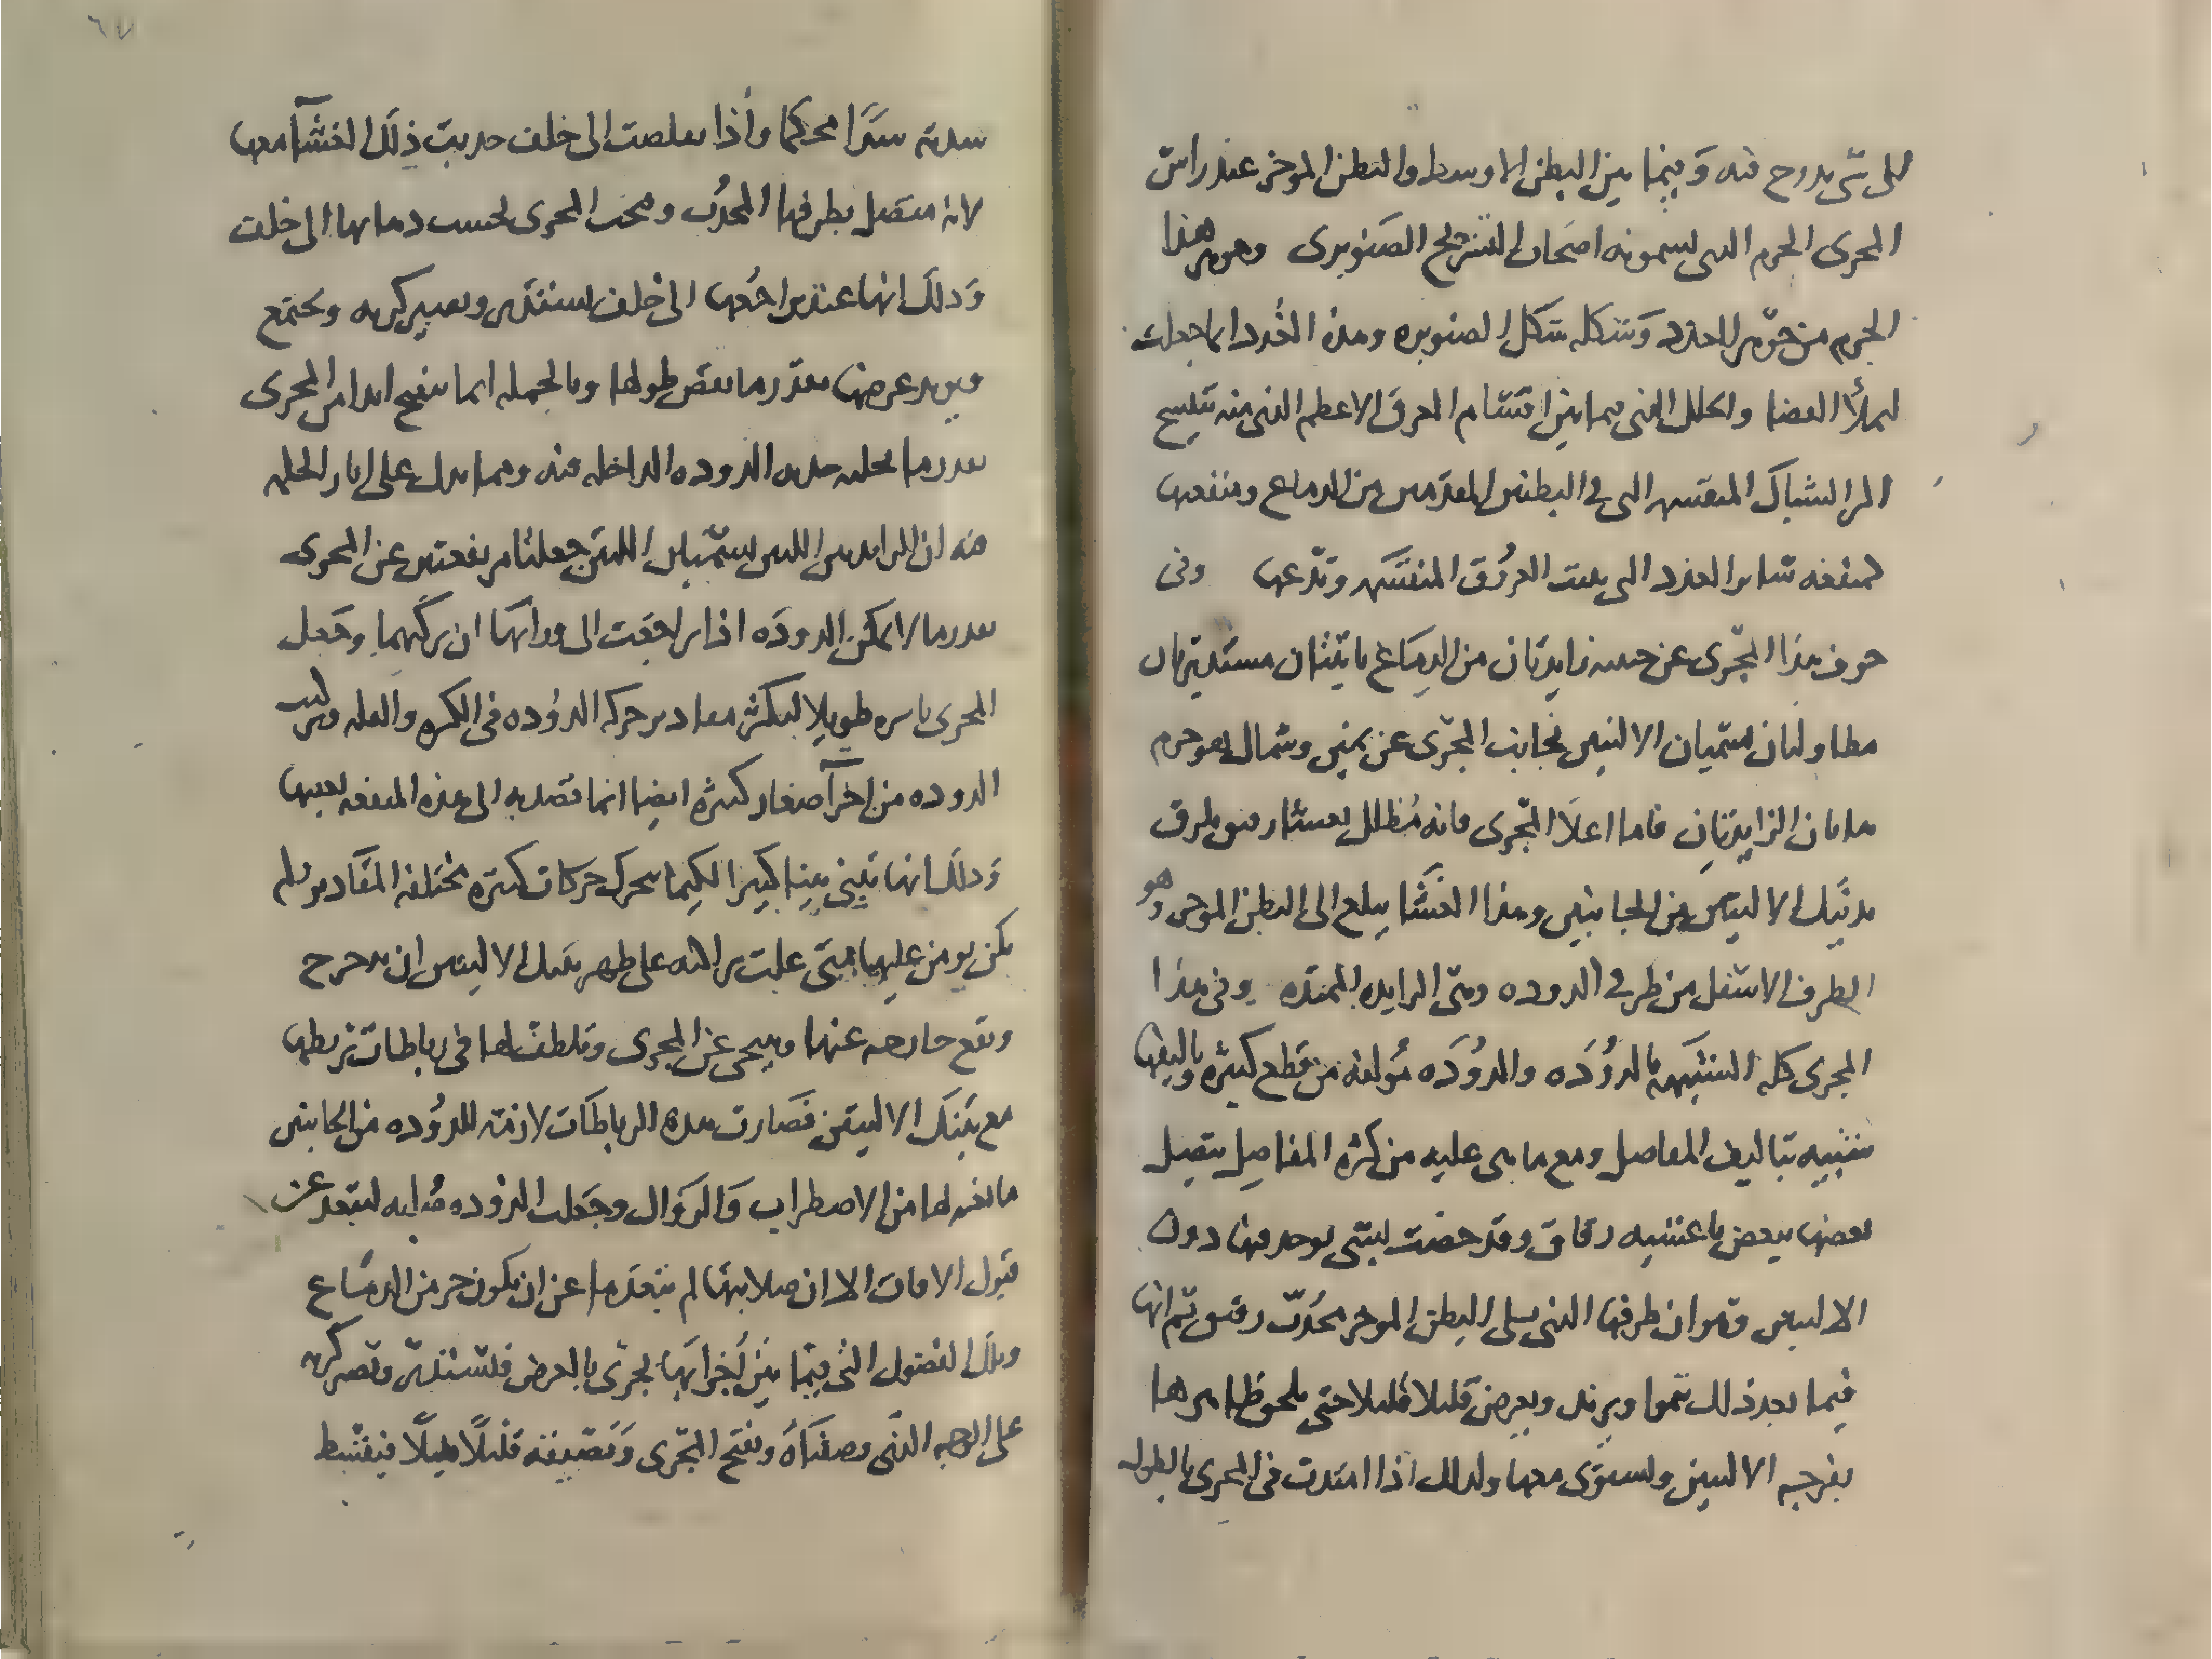 لكل شي يدرج فيه وفيما بين البطن الاوسط والبطن الموخر عند راس
المجرى الجرم الدى يسمونه اصحاب التشريح الصنوبرى وجوهر هذا
الجرم من جوهر الغدد وشكله شكل الصنوبره وهذه الغدد انما جعلت
لتملأ الفضا والخلل الذى فيما بين اقتسام العرق الاعظم الذى منه تنتسج
المرا الشباك المنقسمه التى فى البطنين المقدمين من الدماغ ومنفعتها
كمنفعه ساير الغدد التى تثبت العروق المنقسمه وتدعمها وفى
جوف هذا المجرى عن جنبيه زايدتان من الدماغ ناتئتان مستديرتان
مطاولتان تسميان الاليتين بجانب المجرى عن يمين وشمال هو جرم
هاتان الزايدتان فاما اعلا المجرى فانه مظلل بغشا رقيق ملزق
بدنيك الاليتين من الجانبين وهذا الغشا يبلغ الى البطن الموخر وهو
الطرف الاسفل من طرفى الدوده وهى الزايده الممتده وفى هذا
المجرى كله الشبيهه بالدوده والدوده مولفه من قطع كثيره وتاليفها
شبيه بتاليف المفاصل ومع ما هى عليه من كثرة المفاصل يتصل
بعضها ببعض باغشيه رقاق وقد خصت بشى يوجد فيها دون
الاليتين وهو ان طرفها الذى يلى البطن الموخر محدب رقيق ثم انها
فيما بعد ذلك تنموا وتزيد وتعرض قليلا قليلا حتى يلحق ظاهرها
بفرجة الاليتين وتستوى معها ولذلك اذا امتدت فى المجرى بالطول
سدته سدا محكما واذا تقلصت الى خلف جذبت ذلك الغشا معها
لانه متصل بطرفها المحدب وفتحت المجرى بحسب دهابها الى خلف
وذلك انها عند تراجعها الى خلف تستدير وتصير كريه وتجتمع
ويزيد عرضها بقدر ما نقص طولها وبالجمله انما ينفتح ابدا من المجرى
بقدر ما تخليه هده الدوده الداخله فيه ومما يدل على اثار الحكمه
فيه ان الزايدتين اللتين تسميان اليتين جعلتا مرتفعتين عن المجرى
بقدر ما لا يمكن الدوده اذا تراجعت الى ورائها ان تركبهما وجعل
المجرى باسره طويلا لتكثر مقادير حركه الدوده فى الكثره والقله وتركيب
الدوده من اجزآ صغار كثيره ايضا انما قصد به الى هذه المنفعه بعينها
وذلك انها تنثنى تثنيا كثيرا لكيما تتحرك حركات كثيره مختلفه المقادير ولم
يكن يومن عليها متى علت متراكبه على ظهر تلك الاليتين ان تدحرج
وتقع خارجه عنها وتنتحى عن المجرى وتلطف لها فى رباطات تربطها
مع تينك الاليتين فصارت هده الرباطات لازمه للدوده من الجانبين
مانعه لها من الاضطراب والزوال وجعلت الدوده صلبه لتبعد عن
قبول الافات الا ان صلابتها لم تبعدها عن ان تكون جزء من الدماغ
وتلك الفصول التى فيما بين اجزايها تجرى بالعرض فتستدير وتصير كريه
على الوجه الذى وصفناه وتفتح المجرى وتضيقه قليلا قليلا فينبسط